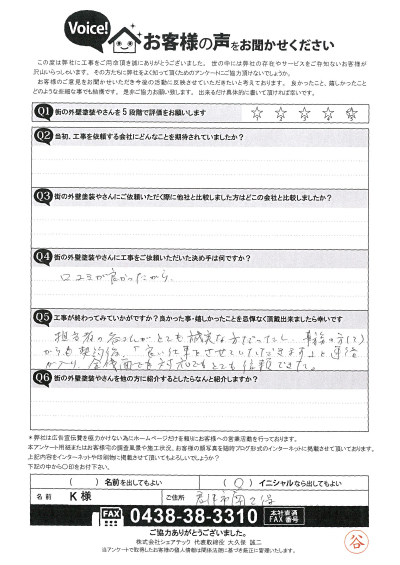 Voice!
お客様の声をお聞かせください
この度は弊社に工事をご用命頂き誠にありがとうございました。世の中には弊社の存在やサービスをご存知ないお客様が
沢山いらっしゃいます。その方たちに弊社をよく知って頂くためのアンケートにご協力頂けないでしょうか。
お客様のご意見をお聞かせいただき今後の活動に反映させていただきたいと考えております。良かったこと、嬉しかったこと
どのような些細な事でも結構です。是非ご協力お願い致します。出来るだけ具体的に書いて頂ければ幸いです。
Q1 街の外壁塗装やさんを5段階で評価をお願いします
☆ ☆ ☆ ☆ ☆
Q2 当初、工事を依頼する会社にどんなことを期待されていましたか?
Q3 街の外壁塗装やさんにご依頼いただく際に他社と比較しました方はどこの会社と比較しましたか?
Q4 街の外壁塗装やさんに工事をご依頼いただいた決め手は何ですか?
口コミが良かったから。
Q5 工事が終わってみていかがですか?良かった事・嬉しかったことを忌憚なく頂戴出来ましたら幸いです
担当者の谷さんがとても誠実な方だったし、事務の方(?)
からも契約後、「良い仕事をさせていただきます」と連絡
があり、金銭面でも対応でもとても信頼できた。
Q6 街の外壁塗装やさんを他の方に紹介するとしたらなんと紹介しますか?
*弊社は広告宣伝費を極力かけない為にホームページだけを頼りにお客様への営業活動を行っております。
本アンケート用紙またはお客様宅の調査風景や施工状況、お客様の顔写真を随時ブログ形式のインターネットに掲載させて頂いております。
上記内容をインターネットや印刷物に掲載させて頂いてもよろしいでしょうか?
下記の中から〇印をお付け下さい。
( ) 名前を出してもよい ( ○ ) イニシャルなら出してもよい
名前 K 様 ご住所
FAX 0438-38-3310 本社直通 FAX番号
ご協力ありがとうございました。
株式会社シェアテック 代表取締役 大久保 誠二
当アンケートで取得したお客様の個人情報は関係法令に基づき厳正に管理いたします。
谷